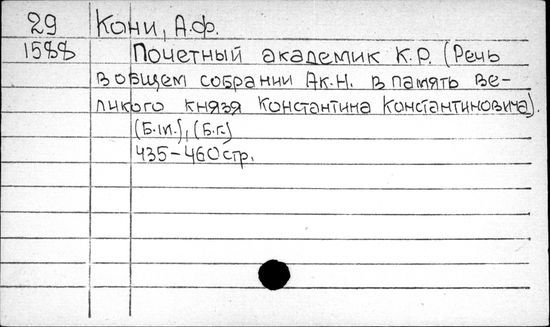 29 Кони, А.Ф.
1588 Почетный академик К.Р. (Речь
в общем собрании Ак.Н. в память ве-
ликого князя Константина Константиновича).
(Б.м.), (Б.г.)
435-460 стр.